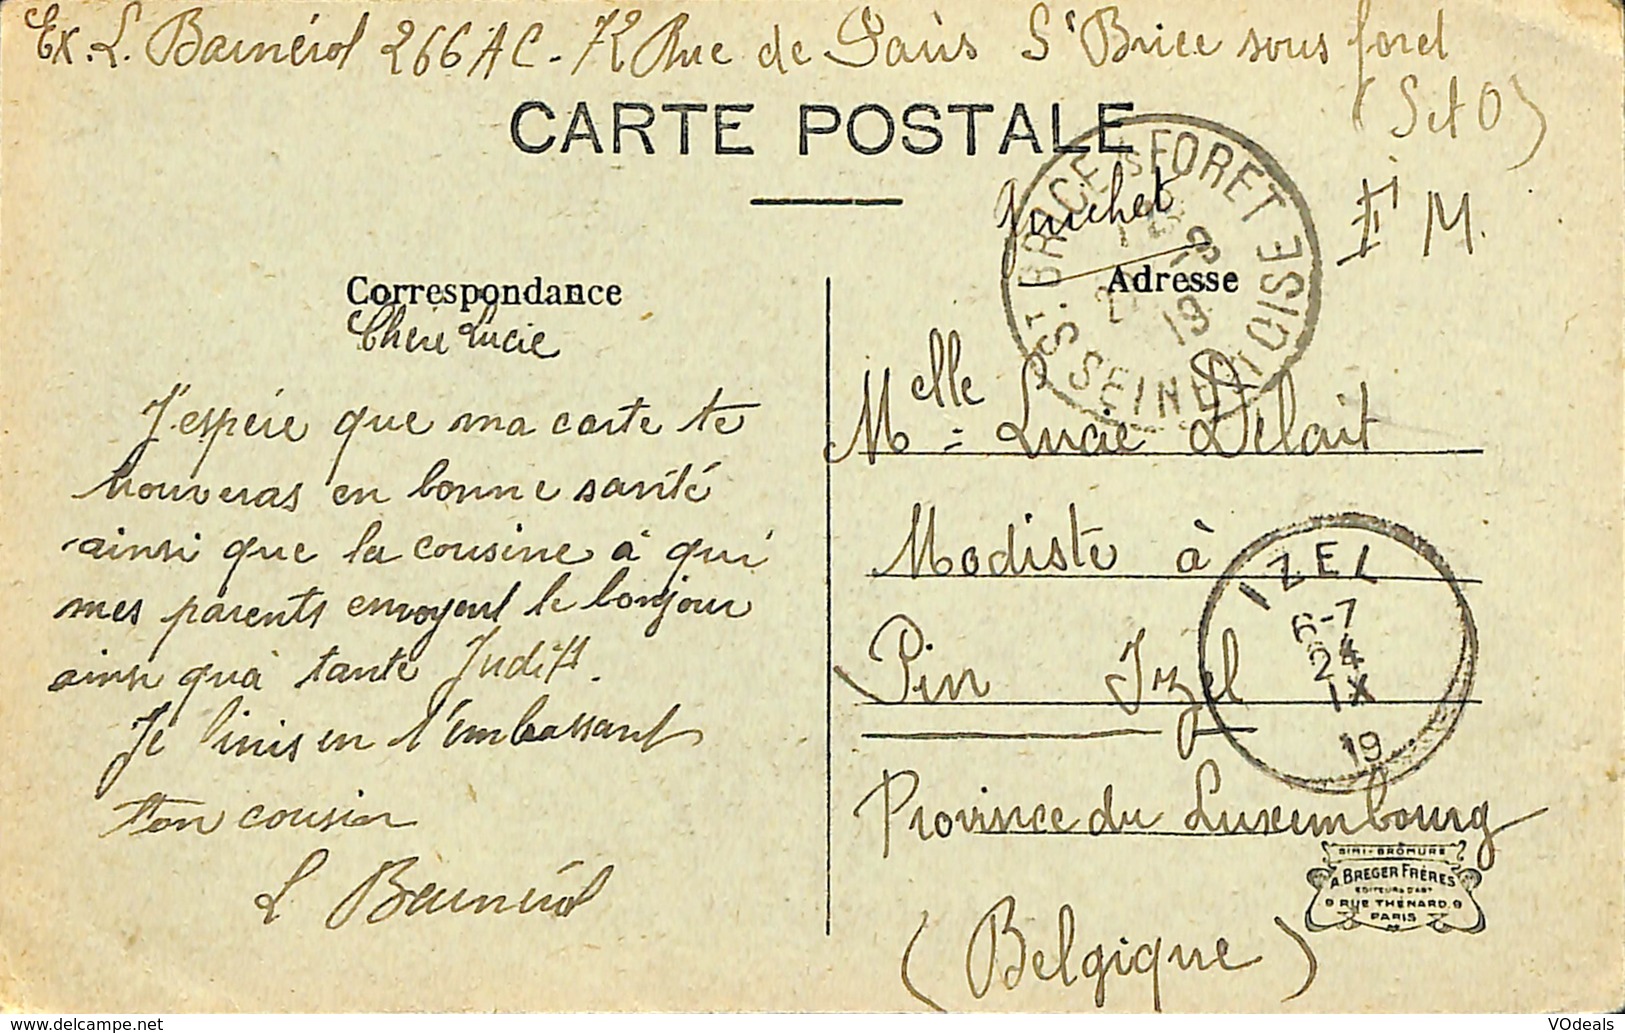 Ex. L. Bainérol 266 AC - 72 Rue de Paris St Brice sous foret
(S et O)
CARTE POSTALE
F M.
ST. BRICE S S FORET
19
SEINE ET OISE
Correspondance
Adresse
Chère Lucie
J'espère que ma carte te
trouveras en bonne santé
ainsi que la cousine à qui
mes parents envoyent le bonjour
ainsi qu'a tante Judith.
Je finis en t'embassant
ton cousin
L Bainérol
Melle Lucie Delait
Modiste à
Pin Izel
Province du Luxembourg
(Belgique)
IZEL
6-7
24
IX
19
SIMI-BROMURE
A. BREGER FRÈRES
EDITEURS D'ART
9 RUE THÉNARD 9
PARIS
www.delcampe.net
VOdeals